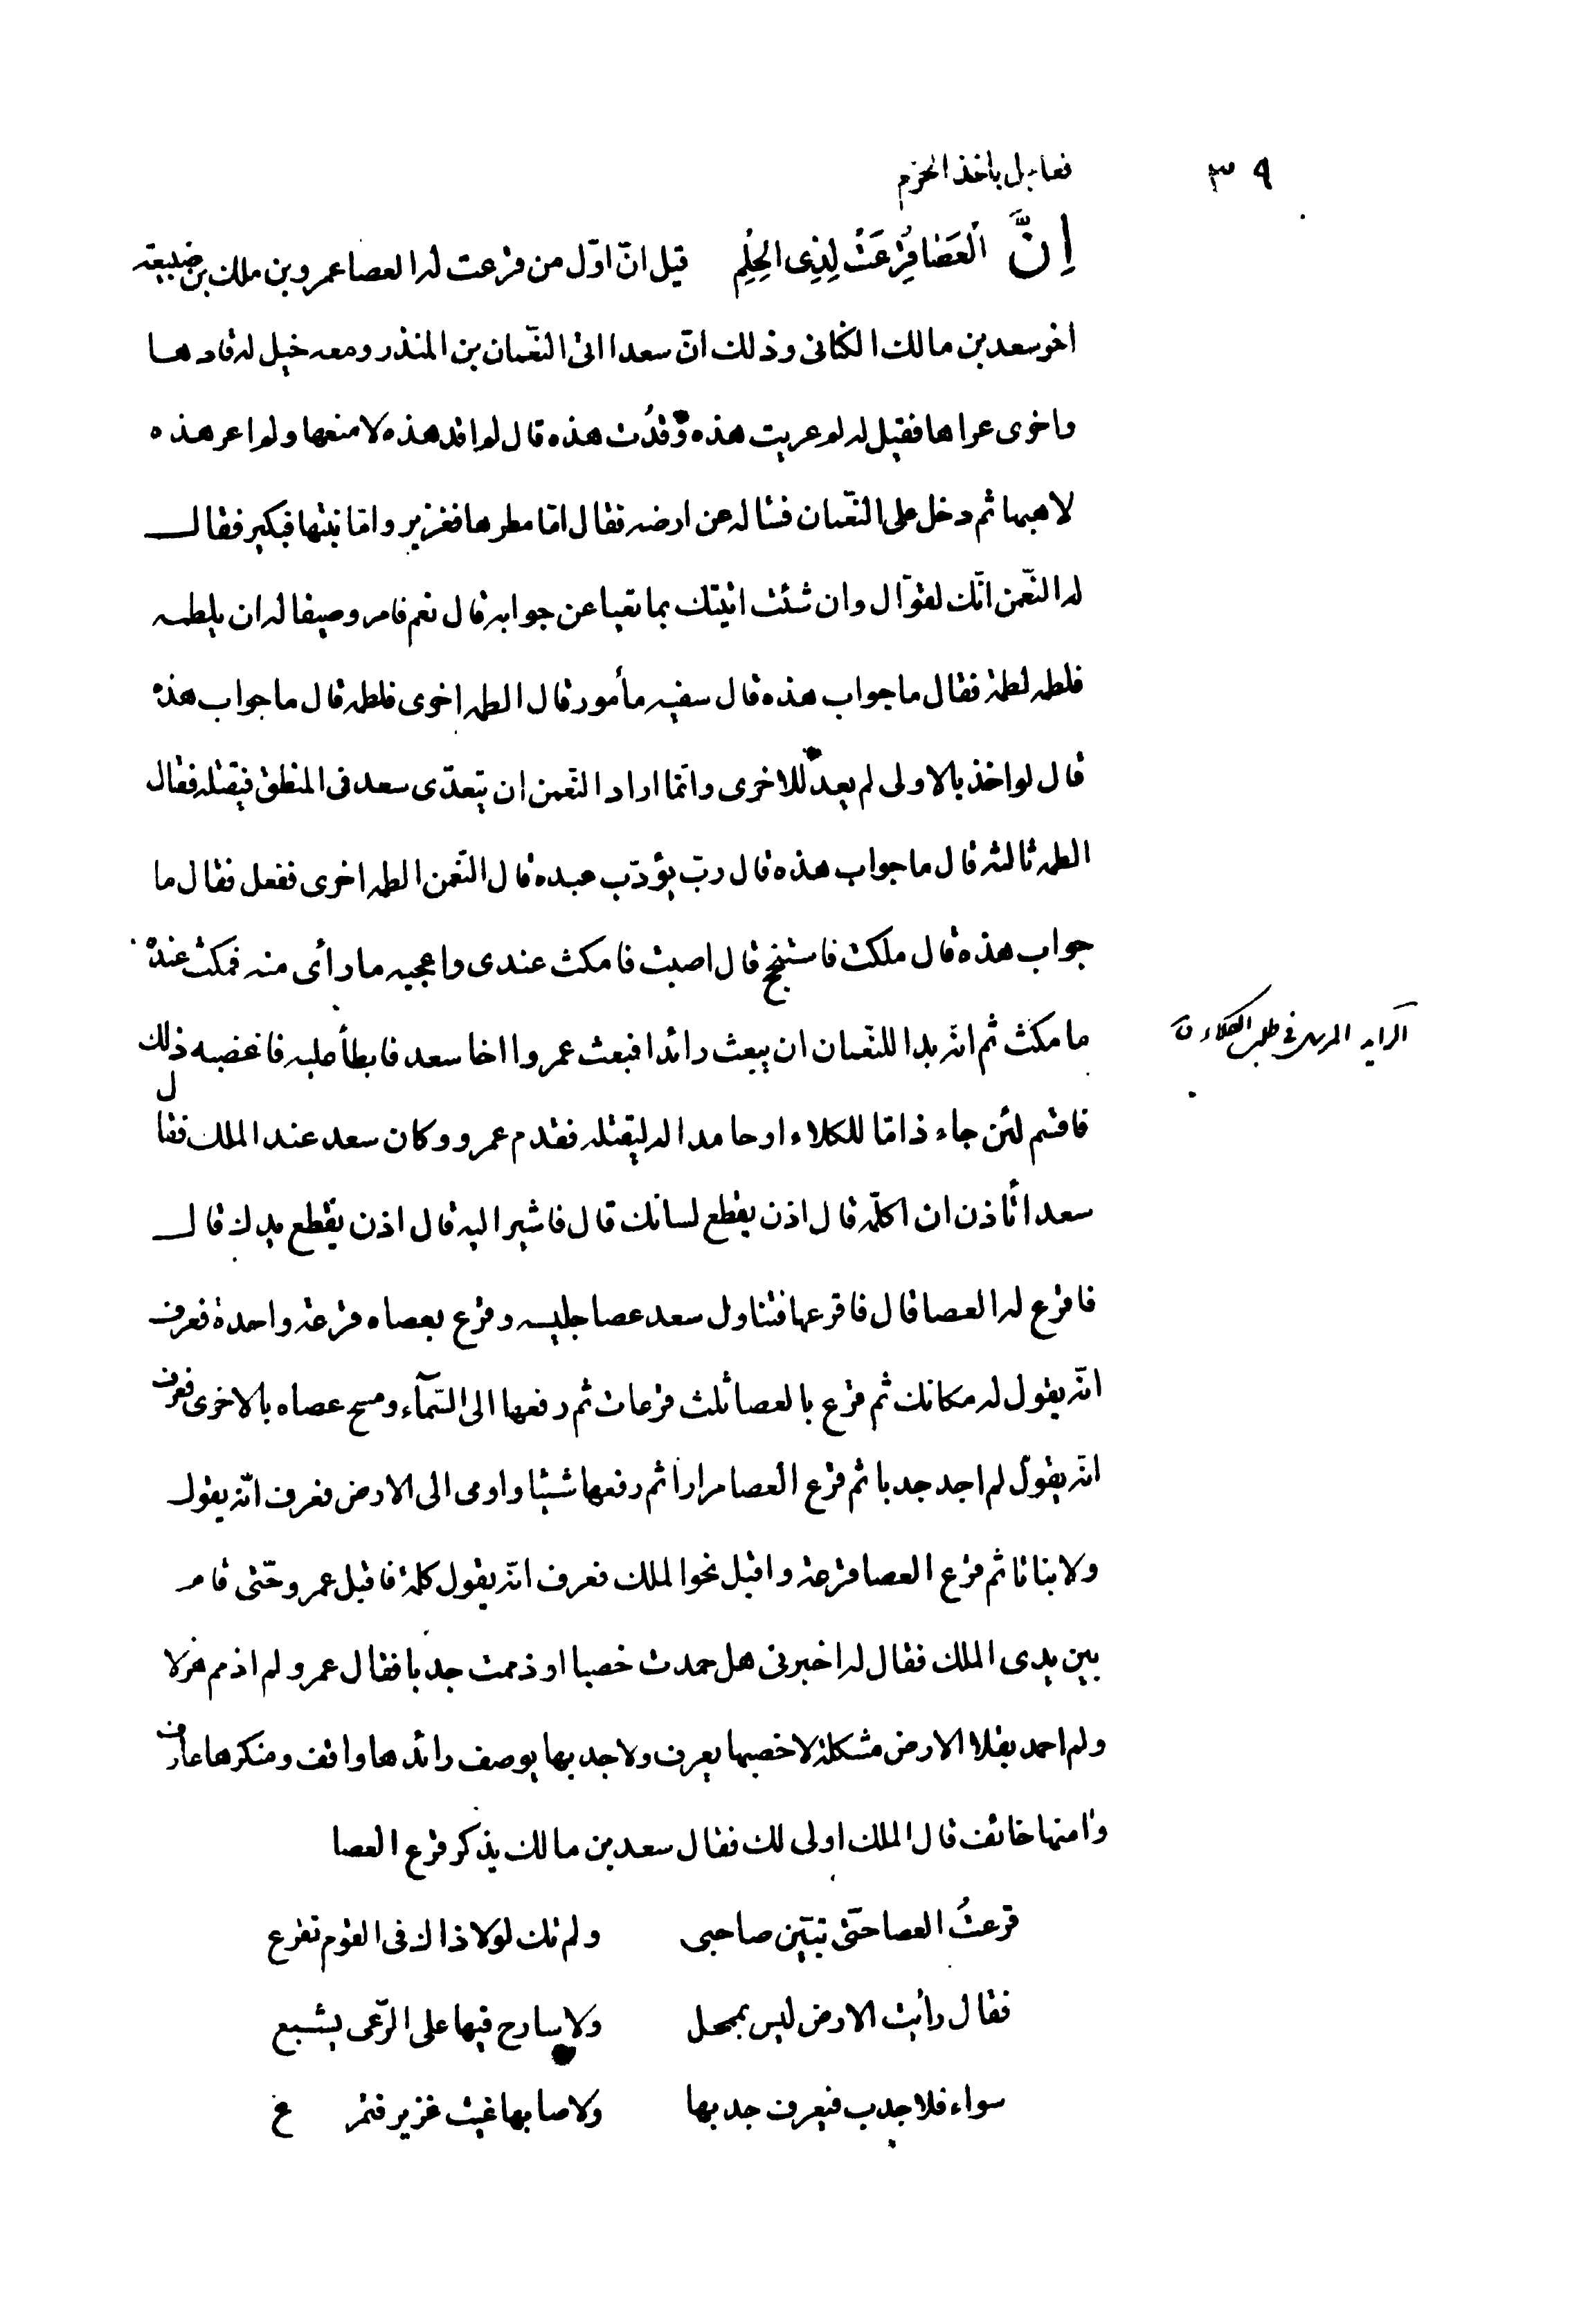 ٣٩
فعايل باخذ الحزم
اِنَّ الْعَصَا قُرِعَتْ لِذِى الْحِلْمِ قيل انّ اوّل من قرعت له العصا عمرو بن ملك بن ضبيعة
اخو سعد بن مالك الكنانى وذلك انّ سعدا اتى النعّمان بن المنذر ومعه خيل له قادها
واخرى عراها فقيل له لم عريت هذه وقدُت هذه قال لم اقد هذه لامنعها ولم اعر هذه
لاهبها ثم دخل على النعّمان فساله عن ارضه فقال امّا مطرها فغزير وامّا نبتها فبكير فقال
له النعّمن انّك لقوّال وان شئت اتيتك بما تعيا عن جوابه قال نعم فامر وصيفا له ان يلطمه
فلطمه لطمة فقال ما جواب هذه قال سفيه مأمور قال الطمه اخرى فلطمه قال ما جواب هذه
قال لو اخذ بالاولى لم يعد للاخرى وانّما اراد النعّمن ان يتعدّى سعد فى المنطق فيقتله فقال
الطمه ثالثه قال ما جواب هذه قال ربّ يؤدّب عبده قال النعّمن الطمه اخرى ففعل فقال ما
جواب هذه قال ملكت فاسجح قال اصبت فامكث عندى واعجبه ما رأى منه فمكث عنده
ما مكث ثم انّه بدا للنعّمان ان يبعث رائدا فبعث عمروا اخا سعد فابطأ عليه فاغضبه ذلك
الرايد المرسل فى طلب الكلاء
فاقسم لئن جاء ذامّا للكلاء او حامدا له ليقتلنه فقدم عمرو وكان سعد عند الملك فقال
سعد اتأذن ان اكلّمه قال اذن يقطع لسانك قال فاشير اليه قال اذن يقطع يدك قال
فاقرع له العصا قال فاقرعها فتناول سعد عصا جليسه وقرع بعصاه قرعة واحدة فعرف
انّه يقول له مكانك ثم قرع بالعصا ثلث قرعات ثم رفعها الى السّمآء ومسح عصاه بالاخرى فعرف
انّه يقول لم اجد جدبا ثم قرع العصا مرارا ثم رفعها شيئا واومى الى الارض فعرف انّه يقول
ولا بناتا ثم قرع العصا قرعة واقبل نحو الملك فعرف انّه يقول كلمة فاقبل عمرو حتّى قام
بين يدى الملك فقال له اخبرنى هل حمدت خصبا او ذممت جدبا فقال عمرو لم اذمم هزلا
ولم احمد بقلا الارض مشكلة لا خصبها يعرف ولا جدبها يوصف رائدها واقف ومنكرها عارف
وآمنها خائف قال الملك اولى لك فقال سعد بن مالك يذكر قرع العصا
قرعتُ العصا حتّى تبيّن صاحبى ولم تك لولا ذاك فى القوم تقرع
فقال رأيت الارض ليس بمحل ولا سارح فيها على الرّعى يشبع
سواء فلا جدب فيعرف جدبها ولا صابها غيث غزير فتمرع